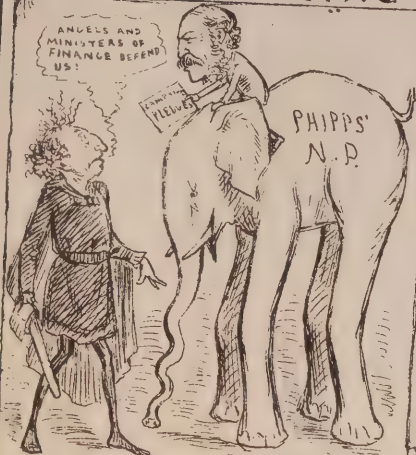 ANGELS AND
MINISTERS OF
FINANCE DEFEND
US!
CAMPAIGN
PLEDGE
PHIPPS'
N.P.